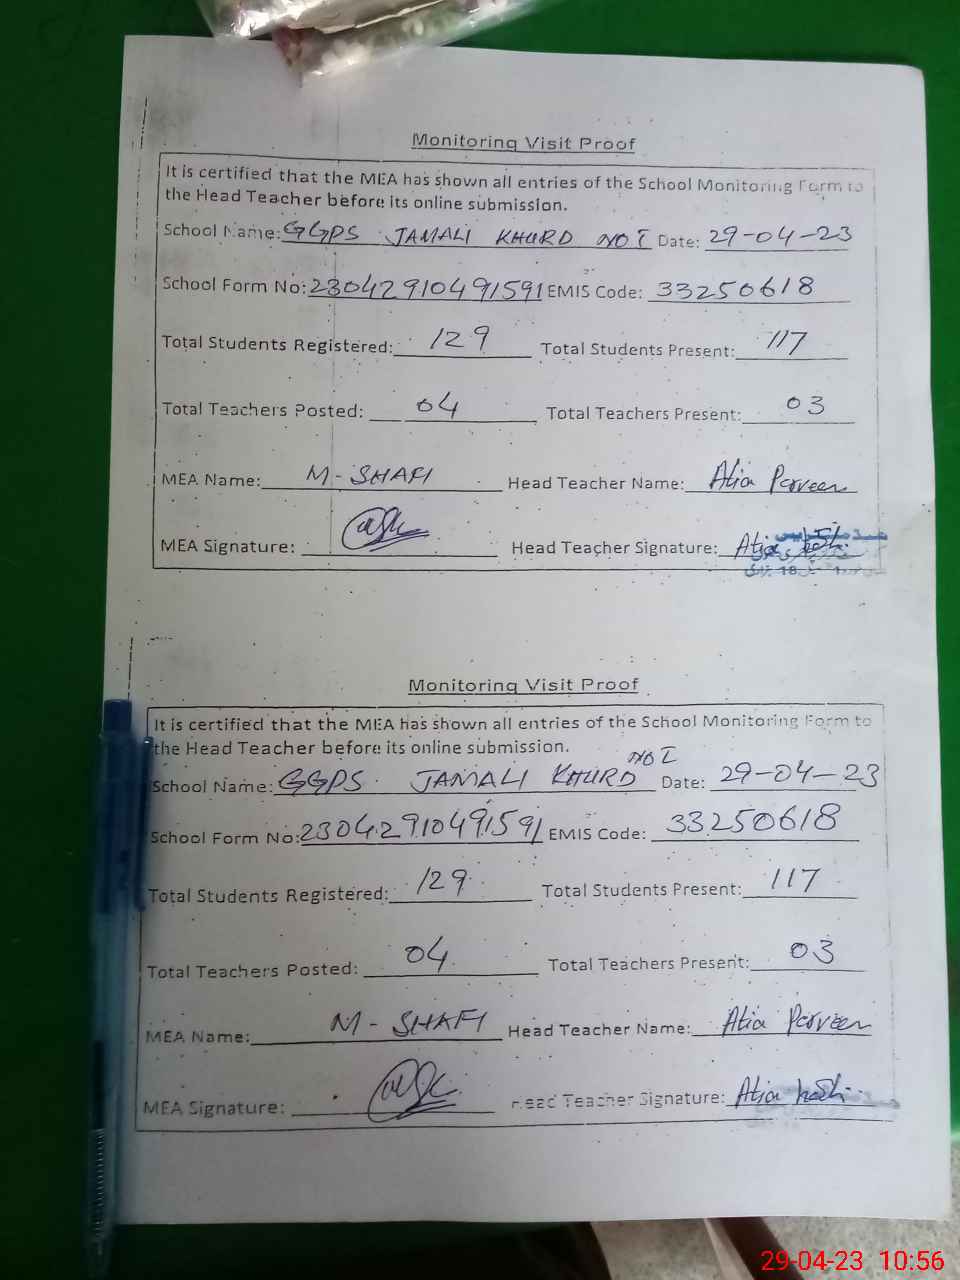 Monitoring Visit Proof
It is certified that the MEA has shown all entries of the School Monitoring Form to
the Head Teacher before its online submission.
School Name: GGPS JAMALI KHURD NO I Date: 29-04-23
School Form No: 23042910491591 EMIS Code: 33250618
Total Students Registered: 129 Total Students Present: 117
Total Teachers Posted: 04 Total Teachers Present: 03
MEA Name: M-SHAFI Head Teacher Name: Atia Parveen
MEA Signature: Head Teacher Signature: Atia
Monitoring Visit Proof
It is certified that the MEA has shown all entries of the School Monitoring Form to
the Head Teacher before its online submission.
School Name: GGPS JAMALI KHURD NO I Date: 29-04-23
School Form No: 23042910491591 EMIS Code: 33250618
Total Students Registered: 129 Total Students Present: 117
Total Teachers Posted: 04 Total Teachers Present: 03
MEA Name: M-SHAFI Head Teacher Name: Atia Parveen
MEA Signature: Head Teacher Signature: Atia
29-04-23 10:56